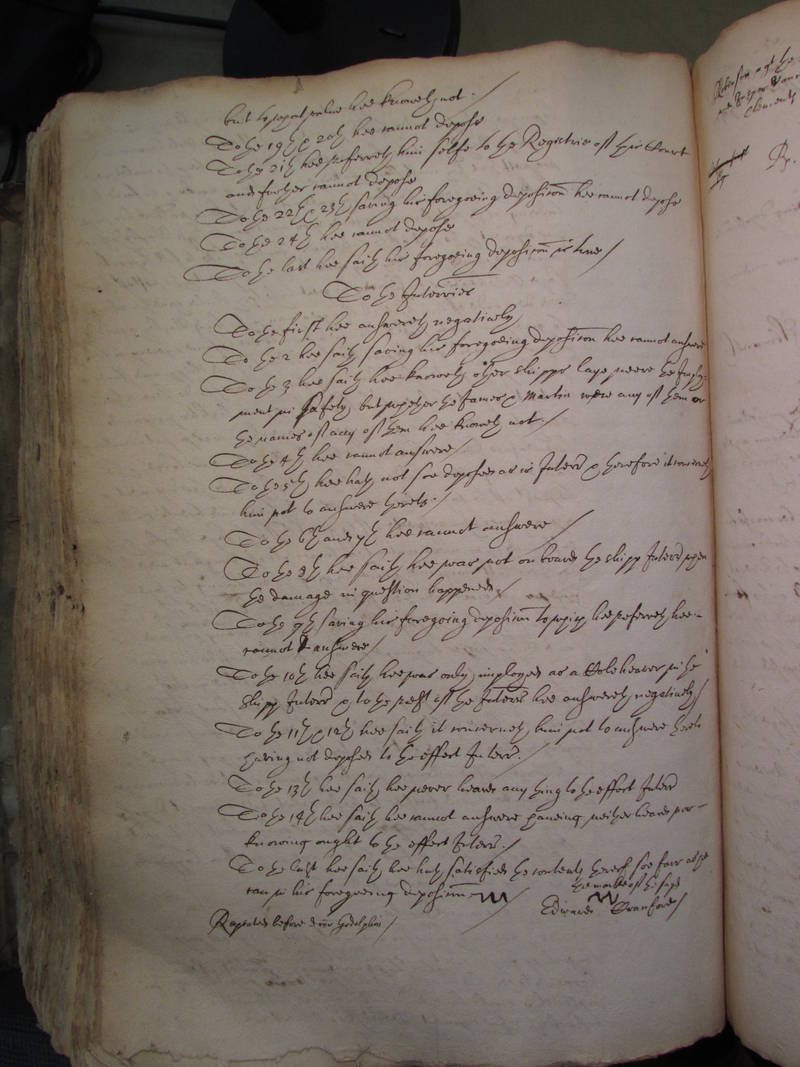 but to what value hee knoweth not./
To the 19th & 20th hee cannot depose
To the 21th hee referreth him selfe to the Registrie of this Court
and further cannot depose
To the 22th & 23th saving his foregoeing deposicon hee cannot depose
To the 24th hee cannot depose
To the last hee saith his foregoeing deposicon is true/
To the Interries
To the first hee answereth negatively
To the 2 hee saith saving his foregoeing deposicon hee cannot answere
To the 3 hee saith hee knoweth other shipps laye neere the
in safety but whether the James & Martin were any of them or
the names of any of them hee knoweth not./
To the 4th hee cannot answere/
To the 5th hee hath not soe deposed as is Interr & therefore it concerneth
him not to answere hereto./
To the 6th and 7th hee cannot answere/
To the 8th hee saith hee was not on board the shipp Interrd when
the damage in question happened/
To the 9th saving his foregoeing deposicon to which hee referreth hee
cannot answere/
To the 10th hee saith hee was only imployed as a Coleheaver in the
shipp Interrd & to the rest of the Interrs hee answereth negatively/
To the 11th & 12th hee saith it concerneth him not to answere hereto
having not deposed to the effect Interr./
To the 13th hee saith hee never heard any thing to the effect Interrd
To the 14th hee saith hee cannot answere haveing neither heard nor
knowing ought to the effect Interr./
To the last hee saith hee hath satisfied the contents hereof soe farr as he
can in his foregoeing deposicon/
the marke of the sayd
Edward Cranford/
Repeated before doctor Godolphin/